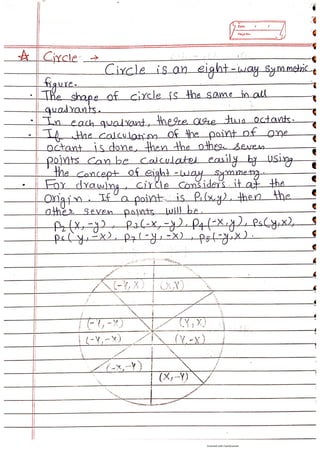 Circle →
Circle is an eight-way symmetric
figure.
• The shape of circle is the same in all
quadrants.
• In each quadrant, there are two octants.
• If the calculation of the point of one
octant is done, then the other seven
points can be calculated easily by using
the concept of eight-way symmetry.
• For drawing, circle considers it at the
origin. If a point is P1(x,y), then the
other seven points will be.
P2(x,-y), P3(-x,-y), P4(-x,y), P5(y,x),
P6(y,-x), P7(-y,-x), P8(-y,x).
(-Y, X) (X,Y)
(-Y,-X) (Y,X)
(-Y,-X) (Y,-X)
(-X,-Y)
(X,-Y)